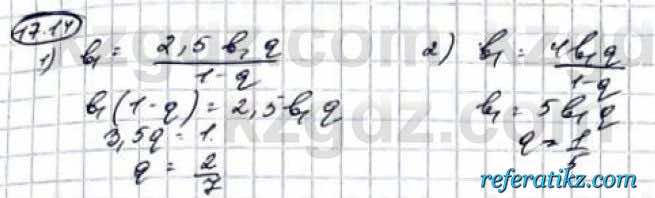 17.14
1) b₁ = 2,5 b₁ q / 1-q
b₁(1-q) = 2,5 b₁ q
3,5q = 1.
q = 2/7
2) b₁ = 4b₁q / 1-q
b₁ = 5b₁q
q = 1/5
kzgdz.com
referatikz.com